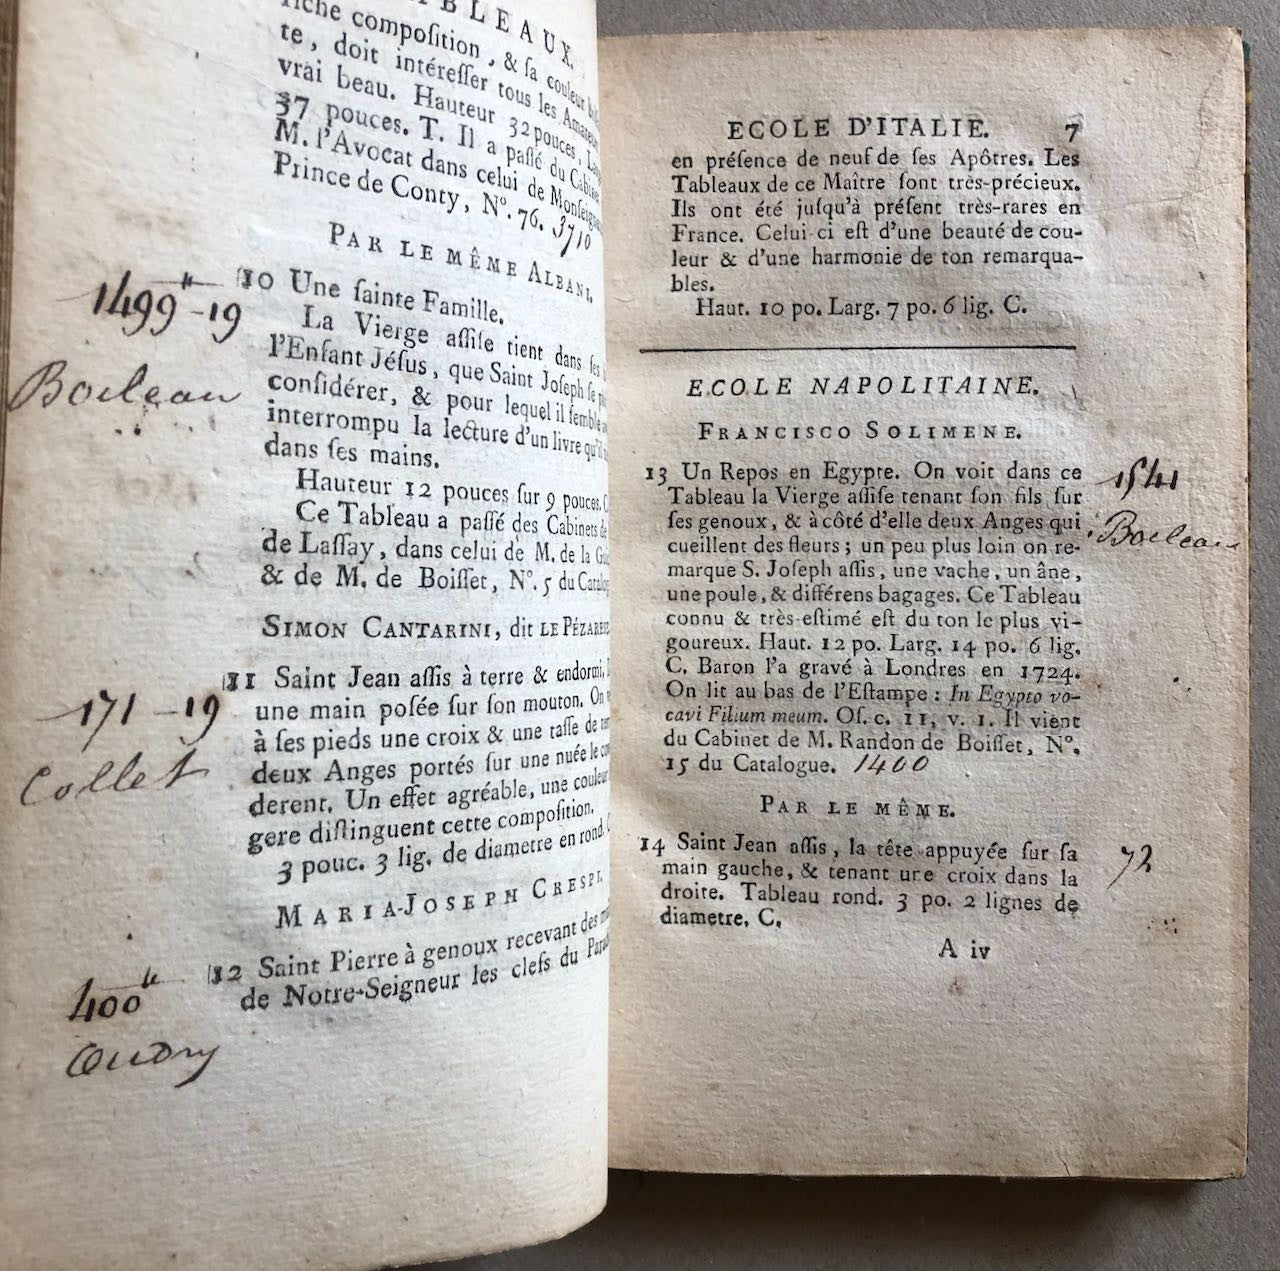 TABLEAUX.
riche composition, & sa couleur
te, doit intéresser tous les Amateurs
vrai beau. Hauteur 32 pouces,
37 pouces. T. Il a passé du Cabinet
M. l'Avocat dans celui de Monseigneur
Prince de Conty, N°. 76. 3710
PAR LE MÊME ALBANI.
10 Une sainte Famille.
1499" - 19
Boileau
La Vierge assise tient dans ses
l'Enfant Jésus, que Saint Joseph se
considérer, & pour lequel il semble
interrompu la lecture d'un livre qu'il
dans ses mains.
Hauteur 12 pouces sur 9 pouces. C
Ce Tableau a passé des Cabinets de
de Lassay, dans celui de M. de la
& de M. de Boisset, N°. 5 du Catalo
SIMON CANTARINI, dit LE PÉZARESE
11 Saint Jean assis à terre & endormi,
171 - 19
Collet
une main posée sur son mouton. On
à ses pieds une croix & une tasse de
deux Anges portés sur une nuée le
derent. Un effet agréable, une couleur
gere distinguent cette composition.
3 pouc. 3 lig. de diametre en rond.
MARIA-JOSEPH CRESPI.
12 Saint Pierre à genoux recevant des
400"
Oudry
de Notre-Seigneur les clefs du
ECOLE D'ITALIE. 7
en présence de neuf de ses Apôtres. Les
Tableaux de ce Maître sont très-précieux.
Ils ont été jusqu'à présent très-rares en
France. Celui ci est d'une beauté de cou-
leur & d'une harmonie de ton remarqua-
bles.
Haut. 10 po. Larg. 7 po. 6 lig. C.
ECOLE NAPOLITAINE.
FRANCISCO SOLIMENE.
13 Un Repos en Egypte. On voit dans ce
1541
Boileau
Tableau la Vierge assise tenant son fils sur
ses genoux, & à côté d'elle deux Anges qui
cueillent des fleurs ; un peu plus loin on re-
marque S. Joseph assis, une vache, un âne,
une poule, & différens bagages. Ce Tableau
connu & très-estimé est du ton le plus vi-
goureux. Haut. 12 po. Larg. 14 po. 6 lig.
C. Baron l'a gravé à Londres en 1724.
On lit au bas de l'Estampe : In Egypto vo-
cavi Filium meum. Os. c. 11, v. 1. Il vient
du Cabinet de M. Randon de Boisset, N°.
15 du Catalogue. 1400
PAR LE MÊME.
14 Saint Jean assis, la tête appuyée sur sa
72
main gauche, & tenant une croix dans la
droite. Tableau rond. 3 po. 2 lignes de
diametre, C.
A iv